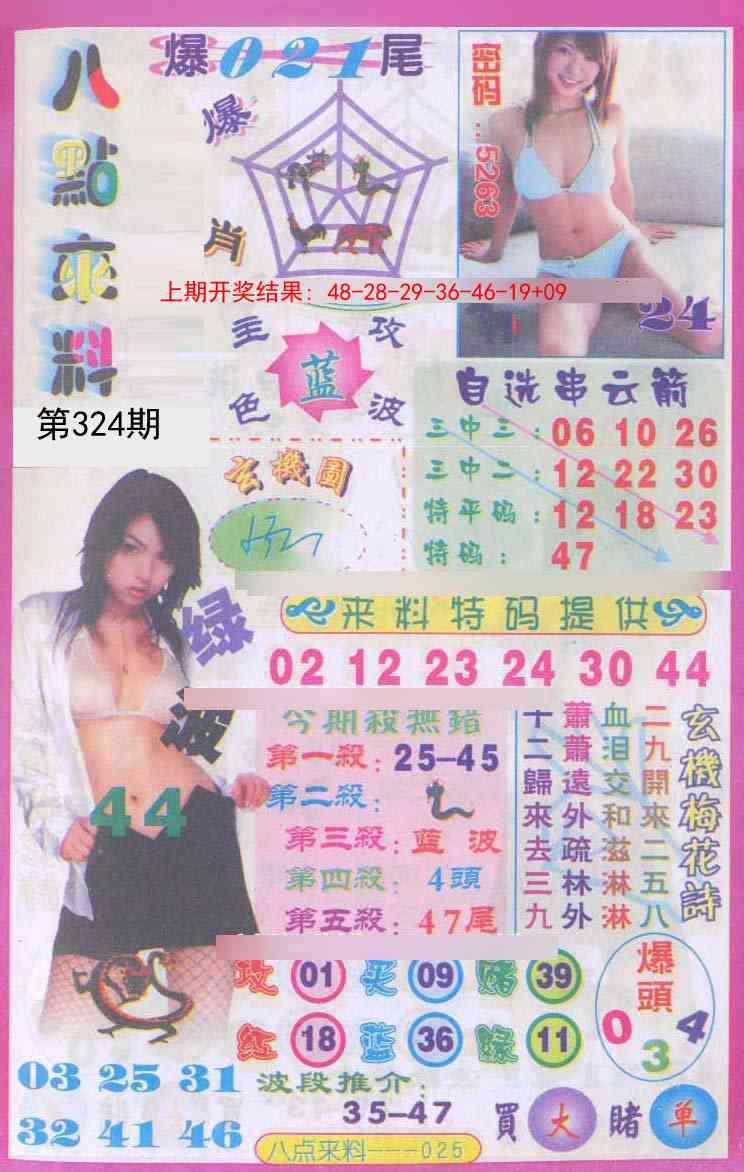 八點來料
爆021尾
爆肖
密码:5263
24
上期开奖结果: 48-28-29-36-46-19+09
主攻
蓝
色波
第324期
自选串云箭
三中三: 06 10 26
三中二: 12 22 30
特平码: 12 18 23
特码: 47
玄機圖
来料特码提供
02 12 23 24 30 44
绿波
44
今期殺無錯
第一殺: 25-45
第二殺:
第三殺: 蓝波
第四殺: 4頭
第五殺: 47尾
玄機梅花詩
二九開來二五八
血泪交和滋淋淋
蕭蕭遠外疏林外
十二歸來去三九
攻 01 买 09 赌 39
红 18 蓝 36 緑 11
爆頭
0 3 4
03 25 31
32 41 46
波段推介:
35-47
買大賭单
八点来料---025